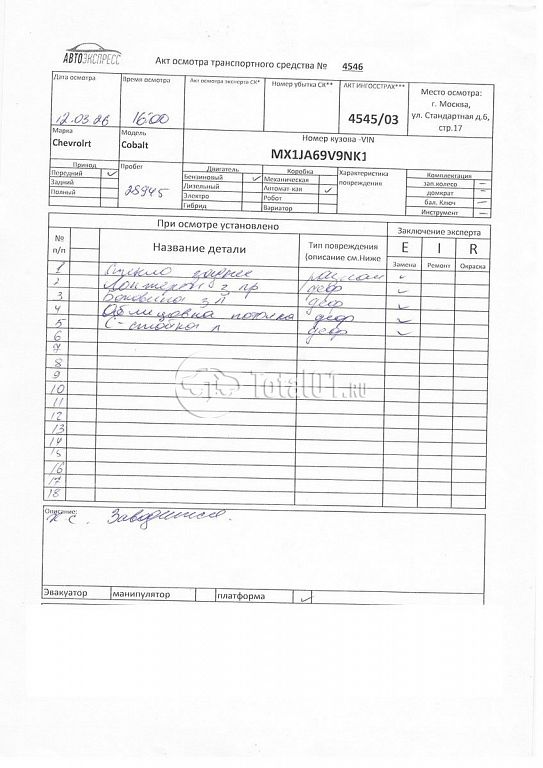 АВТОЭКСПРЕСС
Акт осмотра транспортного средства № 4546
Дата осмотра
12.03.26
Время осмотра
16:00
Акт осмотра эксперта СК*
Номер убытка СК**
АКТ ИНГОССТРАХ***
4545/03
Место осмотра:
г. Москва,
ул. Стандартная д.6,
стр.17
Марка
Chevrolrt
Модель
Cobalt
Номер кузова -VIN
MX1JA69V9NK1
Привод
Передний ✓
Задний
Полный
Пробег
28945
Двигатель
Бензиновый ✓
Дизельный
Электро
Гибрид
Коробка
Механическая
Автомат-кая ✓
Робот
Вариатор
Характеристика
повреждения
Комплектация
зап.колесо —
домкрат —
бал. Ключ —
Инструмент —
При осмотре установлено
Заключение эксперта
№
п/п
Название детали
Тип повреждения
(описание см.Ниже
E I R
Замена Ремонт Окраска
1 Стекло заднее ✓
2 Лонжерон з пр деф ✓
3 Боковина з л деф ✓
4 Облицовка потолка деф ✓
5 С-стойка л деф ✓
6
7
8
9
10
11
12
13
14
15
16
17
18
Total01.RU
Описание:
Заводится.
Эвакуатор манипулятор платформа ✓